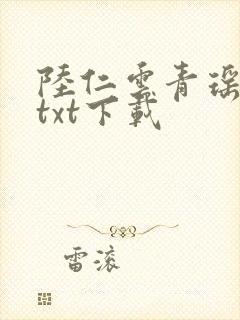 陸仁雲青瑶
txt下載
雷滚